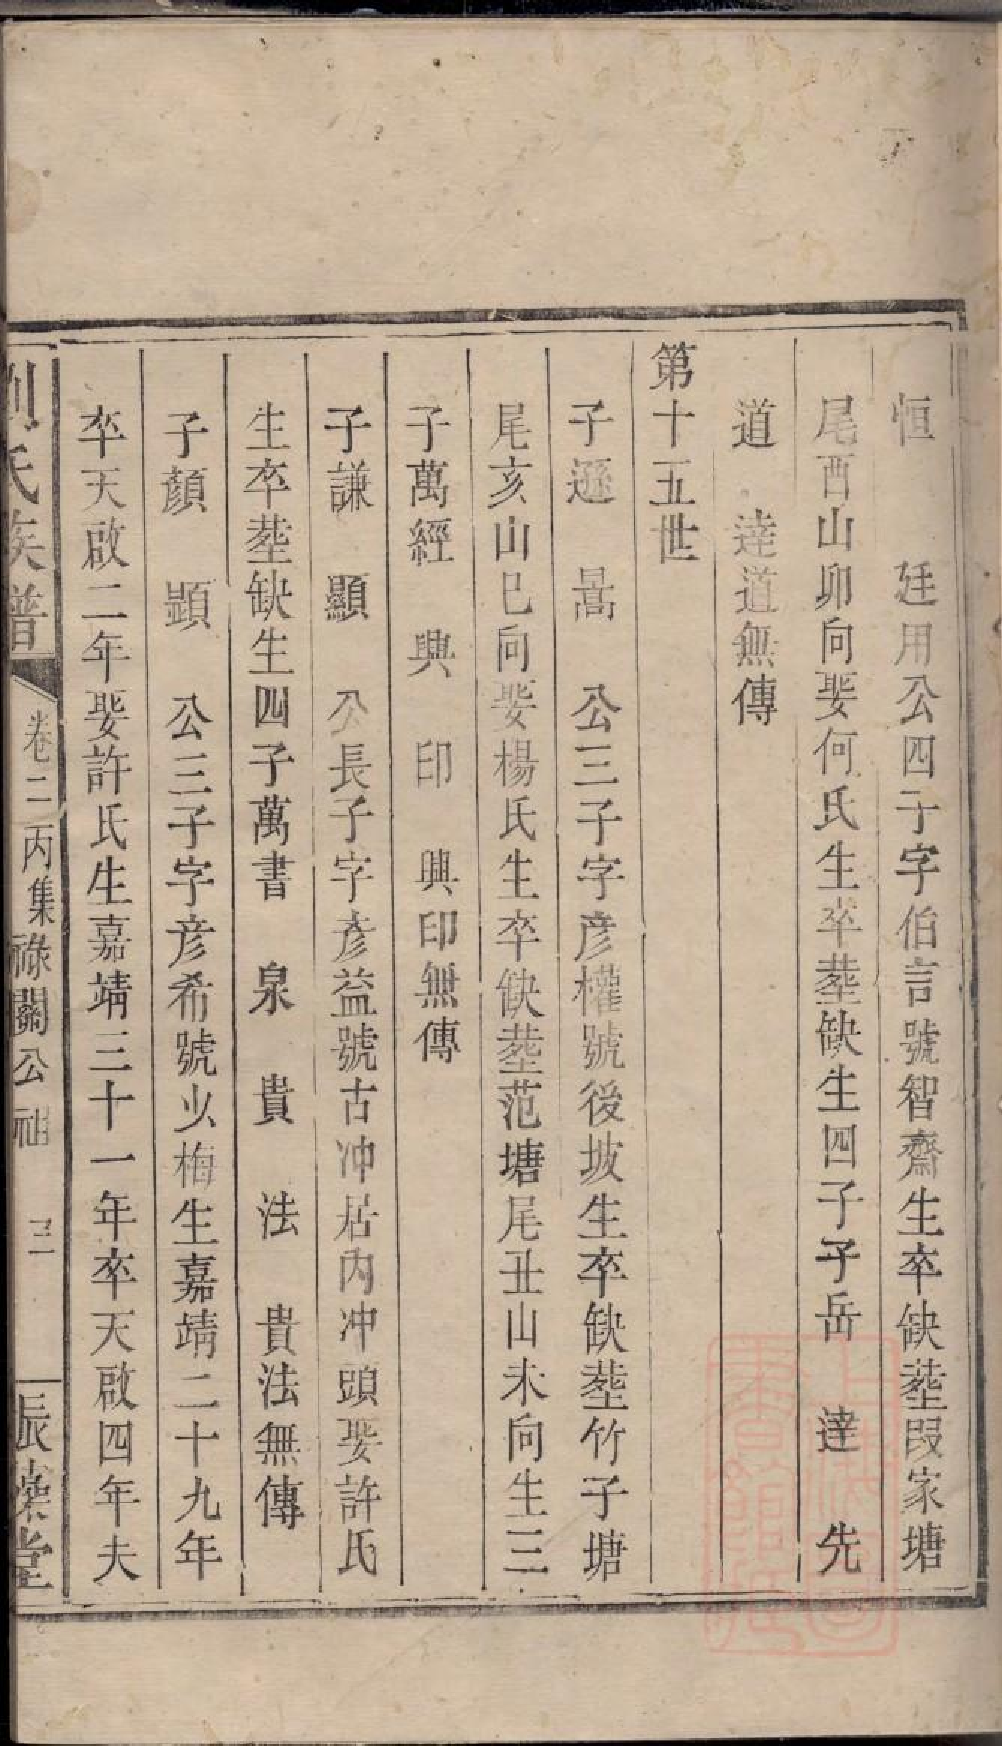 恒　廷用公四子字伯言號智齋生卒缺塟段家塘
尾酉山卯向娶何氏生卒塟缺生四子子岳　達　先
道　達道無傳
第十五世
子遜　暠　公三子字彦權號後坡生卒缺塟竹子塘
尾亥山巳向娶楊氏生卒缺塟范塘尾丑山未向生三
子萬經　興　印　興印無傳
子謙　顯　公長子字彦益號古冲居内冲頭娶許氏
生卒塟缺生四子萬書　泉　貴　法　貴法無傳
子顔　顕　公三子字彦希號少梅生嘉靖二十九年
卒天啟二年娶許氏生嘉靖三十一年卒天啟四年夫
氏族譜　卷二　丙集　祿閣公　三　堂